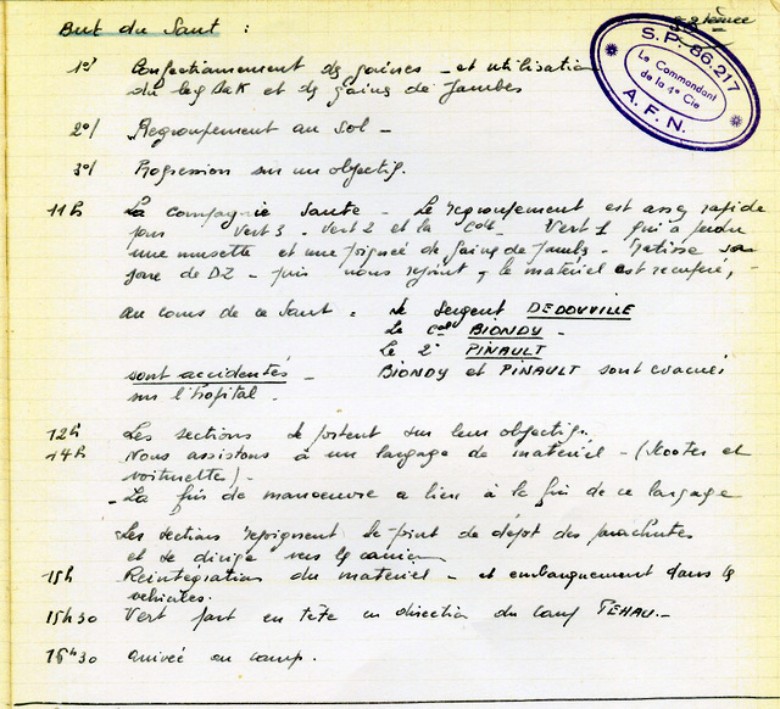 But du Saut :
S.P. 86.217
Le Commandant
de la 4e Cie
A.F.N.
1o/ Confectionnement des gaines - et utilisation
du leg et des gaines de Jambes
2o/ Regroupement au sol -
3o/ Progression sur un objectif.
11h La compagnie saute - Le regroupement est assez rapide
pour Vert 3 - Vert 2 et la Cdt - Vert 1 qui a perdu
une musette et une poignée de gaine de jambes - ratisse sa
zone de DZ - puis nous rejoint, le matériel est récupéré, -
au cours de ce Saut : le Sergent DEDOUVILLE
Le Cal BIONDY -
Le 2e PINAULT
sont accidentés - BIONDY et PINAULT sont évacués
sur l'hopital.
12h Les sections se portent sur leur objectif.
14h Nous assistons à un largage de matériel - (Scooter et
voiturette) -
- La fin de manoeuvre a lieu à la fin de ce largage
Les sections rejoignent le point de dépot des parachutes
et se dirige vers les camions
15h Réintégration du matériel - et embarquement dans les
véhicules.
15h30 Vert part en tête en direction du camp
16h30 arrivée au camp.